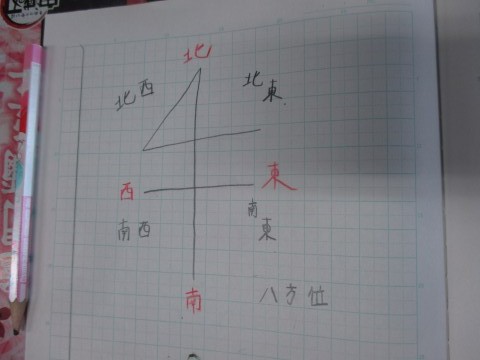 北
北西
北東
西
東
南西
南東
南
八方位